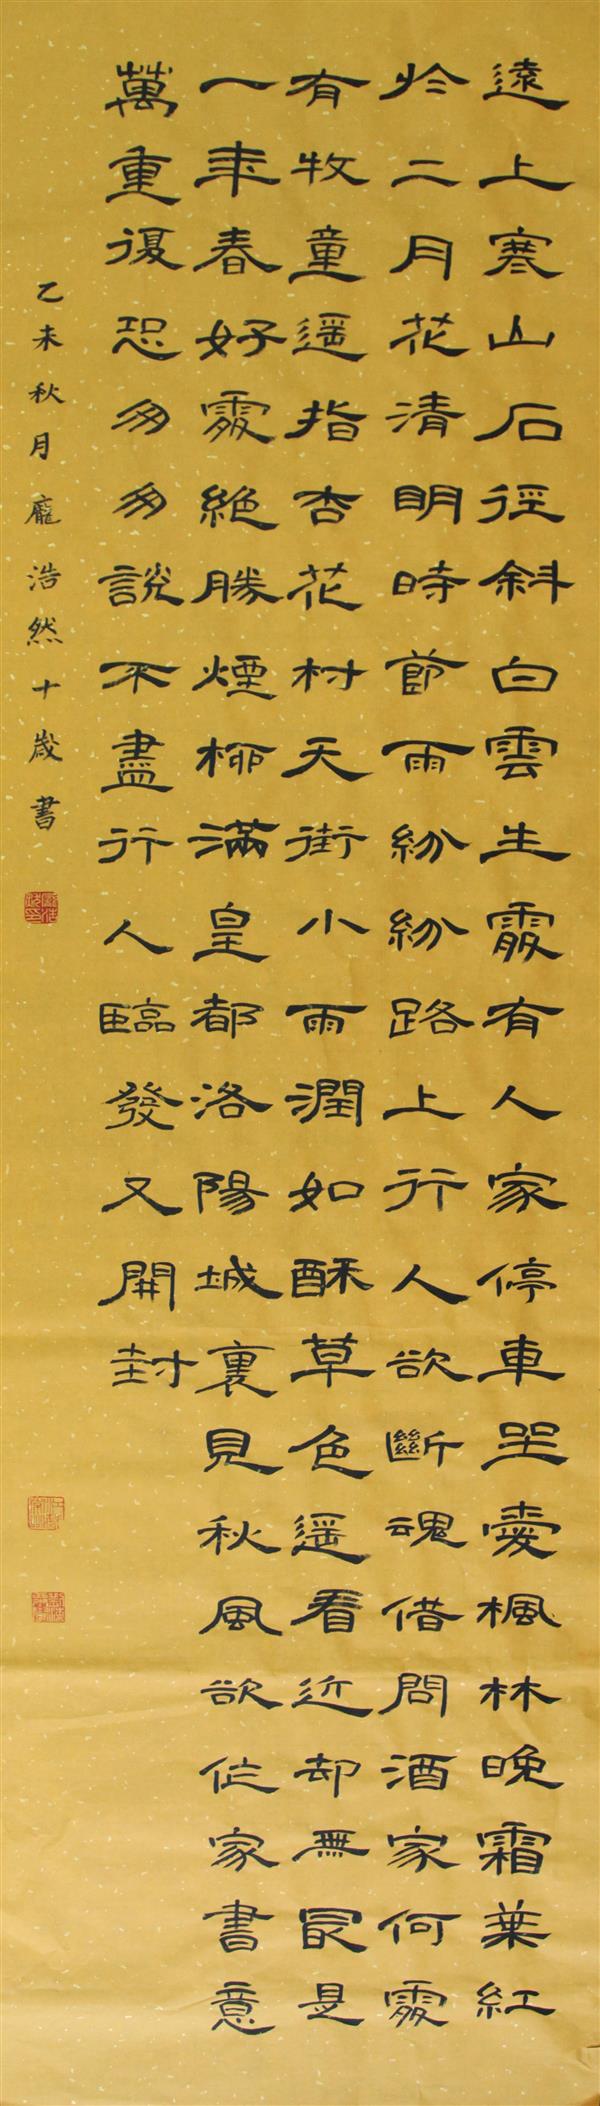 遠上寒山石徑斜白雲生處有人家停車坐愛楓林晚霜葉紅
於二月花清明時節雨紛紛路上行人欲斷魂借問酒家何處
有牧童遥指杏花村天街小雨潤如酥草色遥看近却無最是
一年春好處絕勝煙柳滿皇都洛陽城裏見秋風欲作家書意
萬重復恐匆匆說不盡行人臨發又開封
乙未秋月龐浩然十歲書